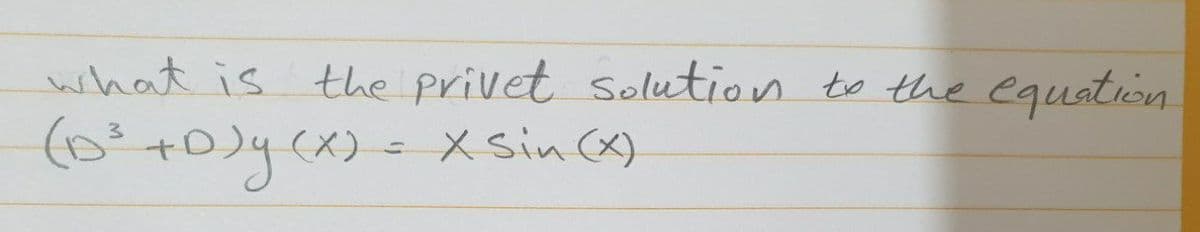 what is the privet solution to the equation
(D³ +D)y(x) = x sin(x)